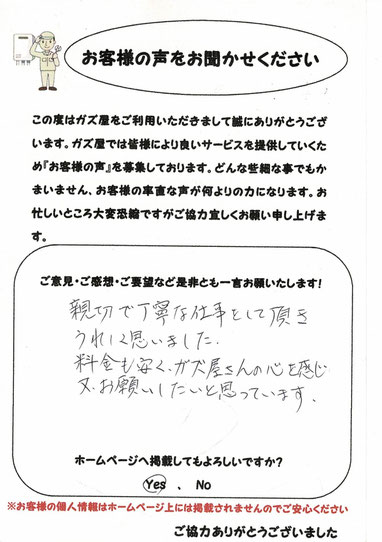 お客様の声をお聞かせください
この度はガズ屋をご利用いただきまして誠にありがとうござ
います。ガズ屋では皆様により良いサービスを提供していくた
め『お客様の声』を募集しております。どんな些細な事でもか
まいません、お客様の率直な声が何よりの力になります。お
忙しいところ大変恐縮ですがご協力宜しくお願い申し上げま
す。
ご意見・ご感想・ご要望など是非とも一言お願いいたします!
親切で丁寧な仕事をして頂き
うれしく思いました.
料金も安く、ガズ屋さんの心を感じ
又、お願いしたいと思っています.
ホームページへ掲載してもよろしいですか?
Yes 、 No
※お客様の個人情報はホームページ上には掲載されませんのでご安心ください
ご協力ありがとうございました